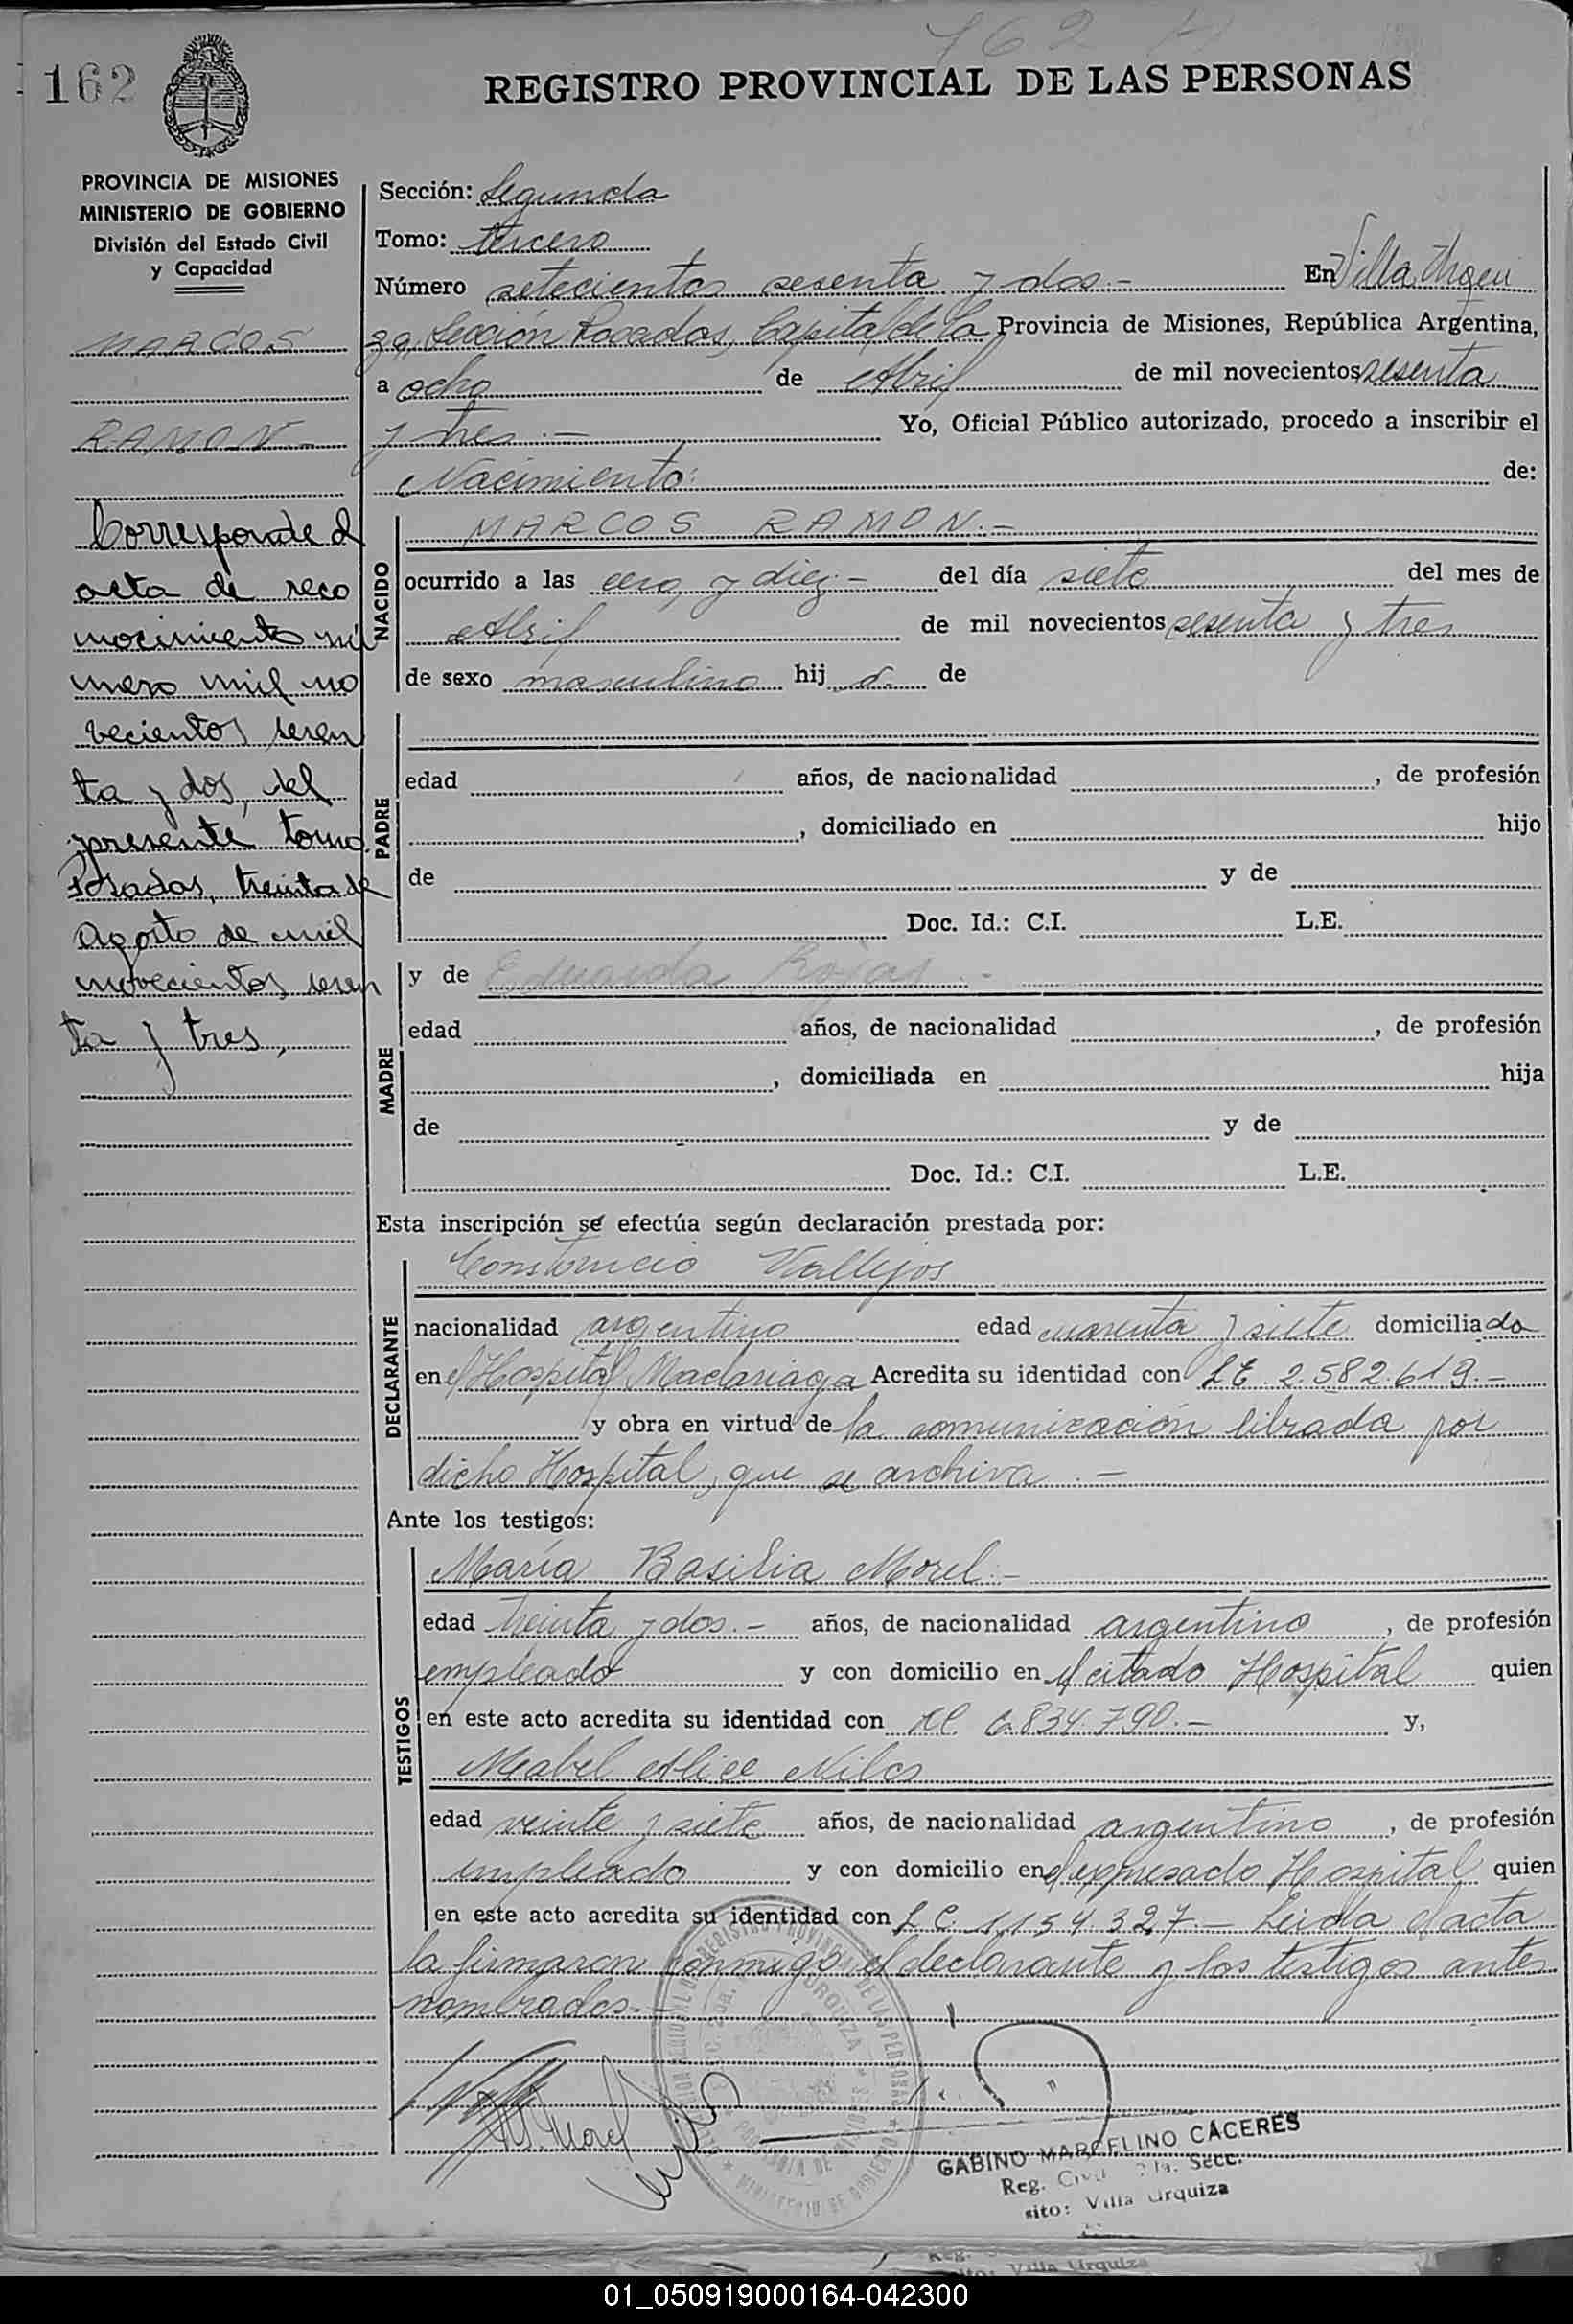 162
762
REGISTRO PROVINCIAL DE LAS PERSONAS
PROVINCIA DE MISIONES
MINISTERIO DE GOBIERNO
División del Estado Civil
y Capacidad
MARCOS
RAMON
Corresponde el
acta de reco
nocimiento nú
mero mil no
vecientos sesen
ta y dos, del
presente tomo.
Posadas, treinta de
Agosto de mil
novecientos sesen
ta y tres,
Sección: Segunda
Tomo: tercero
Número setecientos sesenta y dos.- En Villa Urqui
za, Sección Posadas, Capital de la Provincia de Misiones, República Argentina,
a ocho de Abril de mil novecientos sesenta
y tres.- Yo, Oficial Público autorizado, procedo a inscribir el
Nacimiento: de:
NACIDO
MARCOS RAMON.-
ocurrido a las cero y diez- del día siete del mes de
Abril de mil novecientos sesenta y tres
de sexo masculino hij o de
PADRE
edad años, de nacionalidad , de profesión
, domiciliado en hijo
de y de
Doc. Id.: C.I. L.E.
MADRE
y de Eduarda Rojas.-
edad años, de nacionalidad , de profesión
, domiciliada en hija
de y de
Doc. Id.: C.I. L.E.
Esta inscripción se efectúa según declaración prestada por:
DECLARANTE
Constancio Vallejos
nacionalidad argentino edad cuarenta y siete domiciliado
en el Hospital Madariaga Acredita su identidad con LE. 2.582.619.-
y obra en virtud de la comunicación librada por
dicho Hospital, que se archiva.-
Ante los testigos:
TESTIGOS
María Basilia Morel.-
edad treinta y dos.- años, de nacionalidad argentino , de profesión
empleado y con domicilio en el citado Hospital quien
en este acto acredita su identidad con 6.834.790.- y,
Mabel Alice
edad veinte y siete años, de nacionalidad argentino , de profesión
empleado y con domicilio en el expresado Hospital quien
en este acto acredita su identidad con L C. 1.154.327.- Leida el acta
la firmaron conmigo el declarante y los testigos antes
nombrados.-
Morel
GABINO MARCELINO CACERES
Reg. Civil 2da. Secc.
sito: Villa Urquiza
Villa Urquiza
01_050919000164-042300